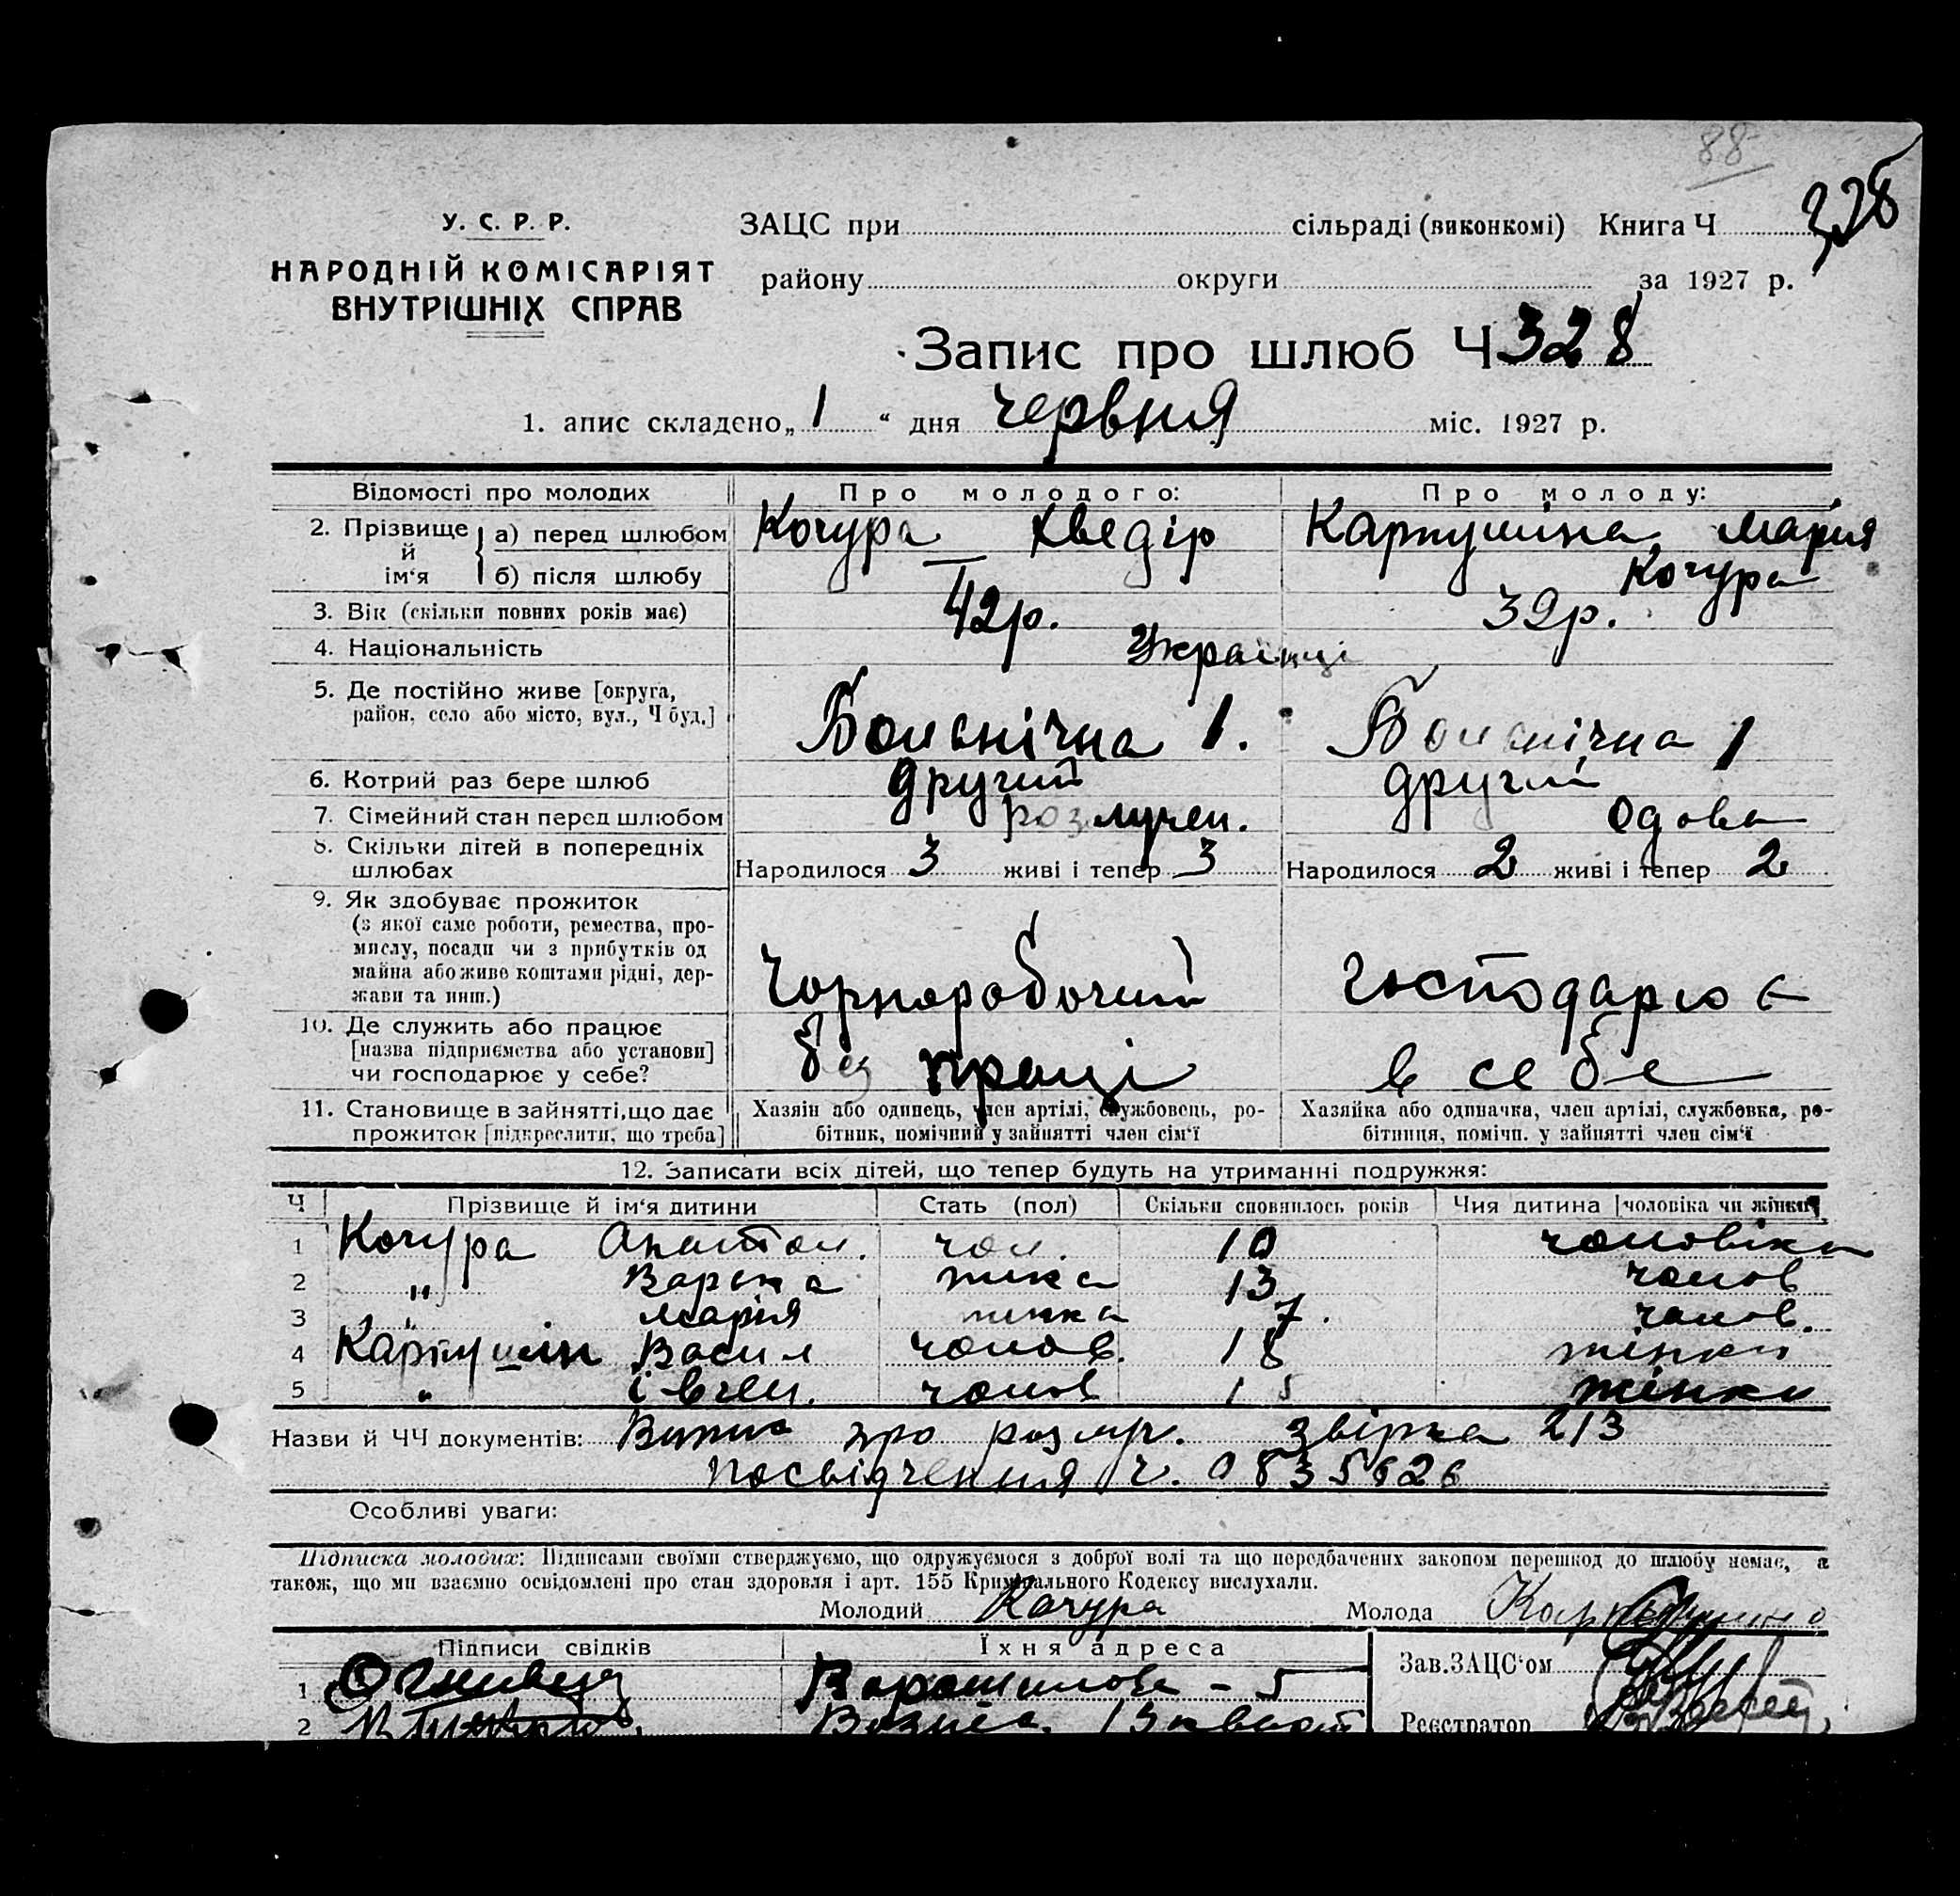 88
328
У. С. Р. Р.
НАРОДНІЙ КОМІСАРІЯТ
ВНУТРІШНІХ СПРАВ
ЗАЦС при сільраді (виконкомі) Книга Ч
району округи за 1927 р.
Запис про шлюб Ч 328
1. апис складено „ 1 “ дня червня міс. 1927 р.
Відомості про молодих Про молодого: Про молоду:
2. Прізвище й ім‘я а) перед шлюбом Кочура Хведір Картушіна Марія
б) після шлюбу — Кочура
3. Вік (скільки повних років має) 42 р. 39 р.
4. Національність Українці
5. Де постійно живе [округа, район, село або місто, вул., Ч буд.] Больнічна 1. Больнічна 1
6. Котрий раз бере шлюб другий другий
7. Сімейний стан перед шлюбом розлучен. Одова
8. Скільки дітей в попередніх шлюбах Народилося 3 живі і тепер 3 Народилося 2 живі і тепер 2
9. Як здобуває прожиток
(з якої саме роботи, ремества, промислу, посади чи з прибутків од майна або живе коштами рідні, держави та инш.) Чорноробочий господарює
10. Де служить або працює
[назва підприємства або установи]
чи господарює у себе? без праці в себе
11. Становище в зайнятті, що дає прожиток [підкреслити, що треба]
Хазяін або одинець, член артілі, службовець, робітник, помічний у зайнятті член сім‘ї
Хазяйка або одиначка, член артілі, службовка, робітниця, помічн. у зайнятті член сім‘ї
12. Записати всіх дітей, що тепер будуть на утриманні подружжя:
Ч Прізвище й ім‘я дитини Стать (пол) Скільки сповнилось років Чия дитина [чоловіка чи жінки]
1 Кочура Анатол. чол. 10 чоловіка
2 „ Варька жінка 13 чолов
3 „ Марія жінка 7. чолов.
4 Картушін Васил чолов. 18 жінки
5 „ чолов 15 жінки
Назви й ЧЧ документів: Випис про розлуч. звірка 213
посвідчення ч. 0835626
Особливі уваги:
Підписка молодих: Підписами своїми стверджуємо, що одружуємося з доброї волі та що передбачених законом перешкод до шлюбу немає, а
також, що ми взаємно освідомлені про стан здоровля і арт. 155 Кримінального Кодексу вислухали.
Молодий Кочура Молода
Підписи свідків Їхня адреса Зав. ЗАЦС‘ом
1 Ворошилова - 5
2 Реєстратор